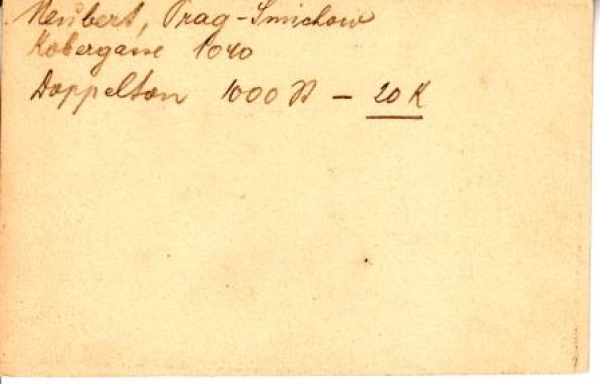 Neubert, Prag-Smichow
Kobergasse 1040
Doppelton 1000 St – 20 K